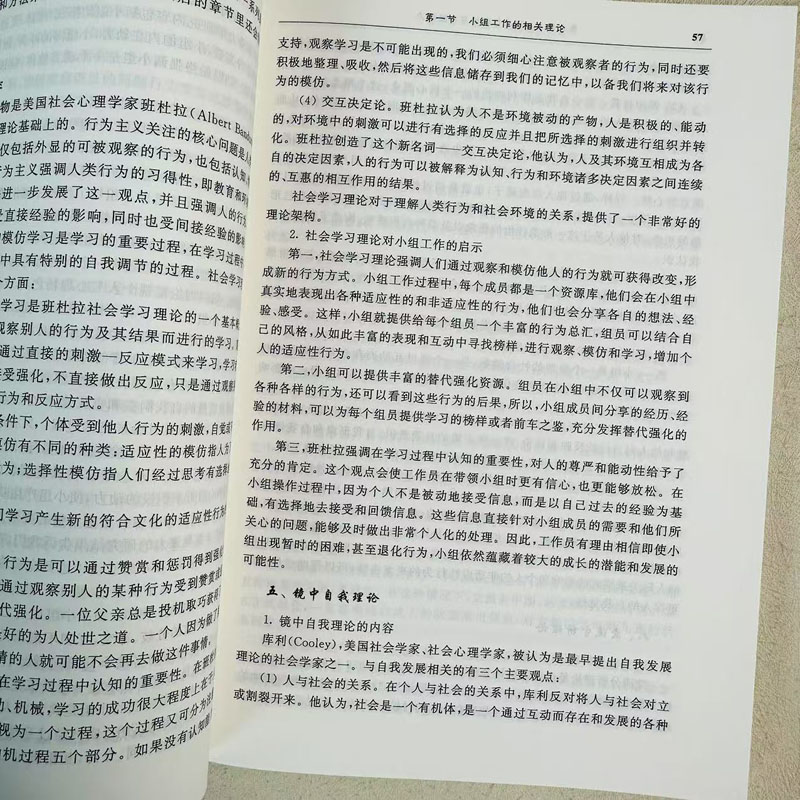 后的章节里还会
物是美国社会心理学家班杜拉(Albert Band
理论基础上的。行为主义关注的核心问题是人
仅包括外显的可被观察的行为,也包括认知
行为主义强调人类行为的习得性,即教育和环
进一步发展了这一观点,并且强调人的行为
受直接经验的影响,同时也受间接经验的影
的模仿学习是学习的重要过程,在学习过程中
中具有特别的自我调节的过程。社会学习
个方面:
学习是班杜拉社会学习理论的一个基本
观察别人的行为及其结果而进行的学习,
通过直接的刺激—反应模式来学习,学习
接受强化,不直接做出反应,只是通过观察
行为和反应方式。
条件下,个体受到他人行为的刺激,自觉或
模仿有不同的种类:适应性的模仿指人为
为;选择性模仿指人们经过思考有选择
们学习产生新的符合文化的适应性行为
行为是可以通过赞赏和惩罚得到强
通过观察别人的某种行为受到赞赏或
代强化。一位父亲总是投机取巧获得
最好的为人处世之道。一个人因为做了
情的人就可能不会再去做这件事情,
在学习过程中认知的重要性。在班杜
动、机械,学习的成功很大程度上在于
视为一个过程,这个过程又可分为注
动机过程五个部分。如果没有认知
第一节 小组工作的相关理论
57
支持,观察学习是不可能出现的,我们必须细心注意被观察者的行为,同时还要
积极地整理、吸收,然后将这些信息储存到我们的记忆中,以备我们将来对该行
为的模仿。
(4)交互决定论。班杜拉认为人不是环境被动的产物,人是积极的、能动
的,对环境中的刺激可以进行有选择的反应并且把所选择的刺激进行组织并转
化。班杜拉创造了这个新名词——交互决定论,他认为,人及其环境互相成为各
自的决定因素,人的行为可以被解释为认知、行为和环境诸多决定因素之间连续
的、互惠的相互作用的结果。
社会学习理论对于理解人类行为和社会环境的关系,提供了一个非常好的
理论架构。
2. 社会学习理论对小组工作的启示
第一,社会学习理论强调人们通过观察和模仿他人的行为就可获得改变,形
成新的行为方式。小组工作过程中,每个成员都是一个资源库,他们会在小组中
真实地表现出各种适应性的和非适应性的行为,他们也会分享各自的想法、经
验、感受。这样,小组就提供给每个组员一个丰富的行为总汇,组员可以结合自
己的风格,从如此丰富的表现和互动中寻找榜样,进行观察、模仿和学习,增加个
人的适应性行为。
第二,小组可以提供丰富的替代强化资源。组员在小组中不仅可以观察到
各种各样的行为,还可以看到这些行为的后果,所以,小组成员间分享的经历、经
验的材料,可以为每个组员提供学习的榜样或者前车之鉴,充分发挥替代强化的
作用。
第三,班杜拉强调在学习过程中认知的重要性,对人的尊严和能动性给予了
充分的肯定。这个观点会使工作员在带领小组时更有信心,也更能够放松。在
小组操作过程中,因为个人不是被动地接受信息,而是以自己过去的经验为基
础,有选择地去接受和回馈信息。这些信息直接针对小组成员的需要和他们所
关心的问题,能够及时做出非常个人化的处理。因此,工作员有理由相信即使小
组出现暂时的困难,甚至退化行为,小组依然蕴藏着较大的成长的潜能和发展的
可能性。
五、镜中自我理论
1. 镜中自我理论的内容
库利(Cooley),美国社会学家、社会心理学家,被认为是最早提出自我发展
理论的社会学家之一。与自我发展相关的有三个主要观点:
(1)人与社会的关系。在个人与社会的关系中,库利反对将人与社会对立
或割裂开来。他认为,社会是一个有机体,是一个通过互动而存在和发展的各种